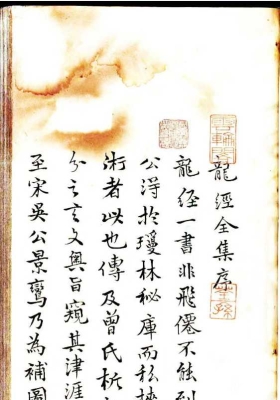 龍經全集序
龍経一書非飛僊不能到
公淂於瓊林秘庫而私挾
術者以也傳及曾氏析
分之言文奧旨窺其津涯
至宋吳公景鸞乃為補圖